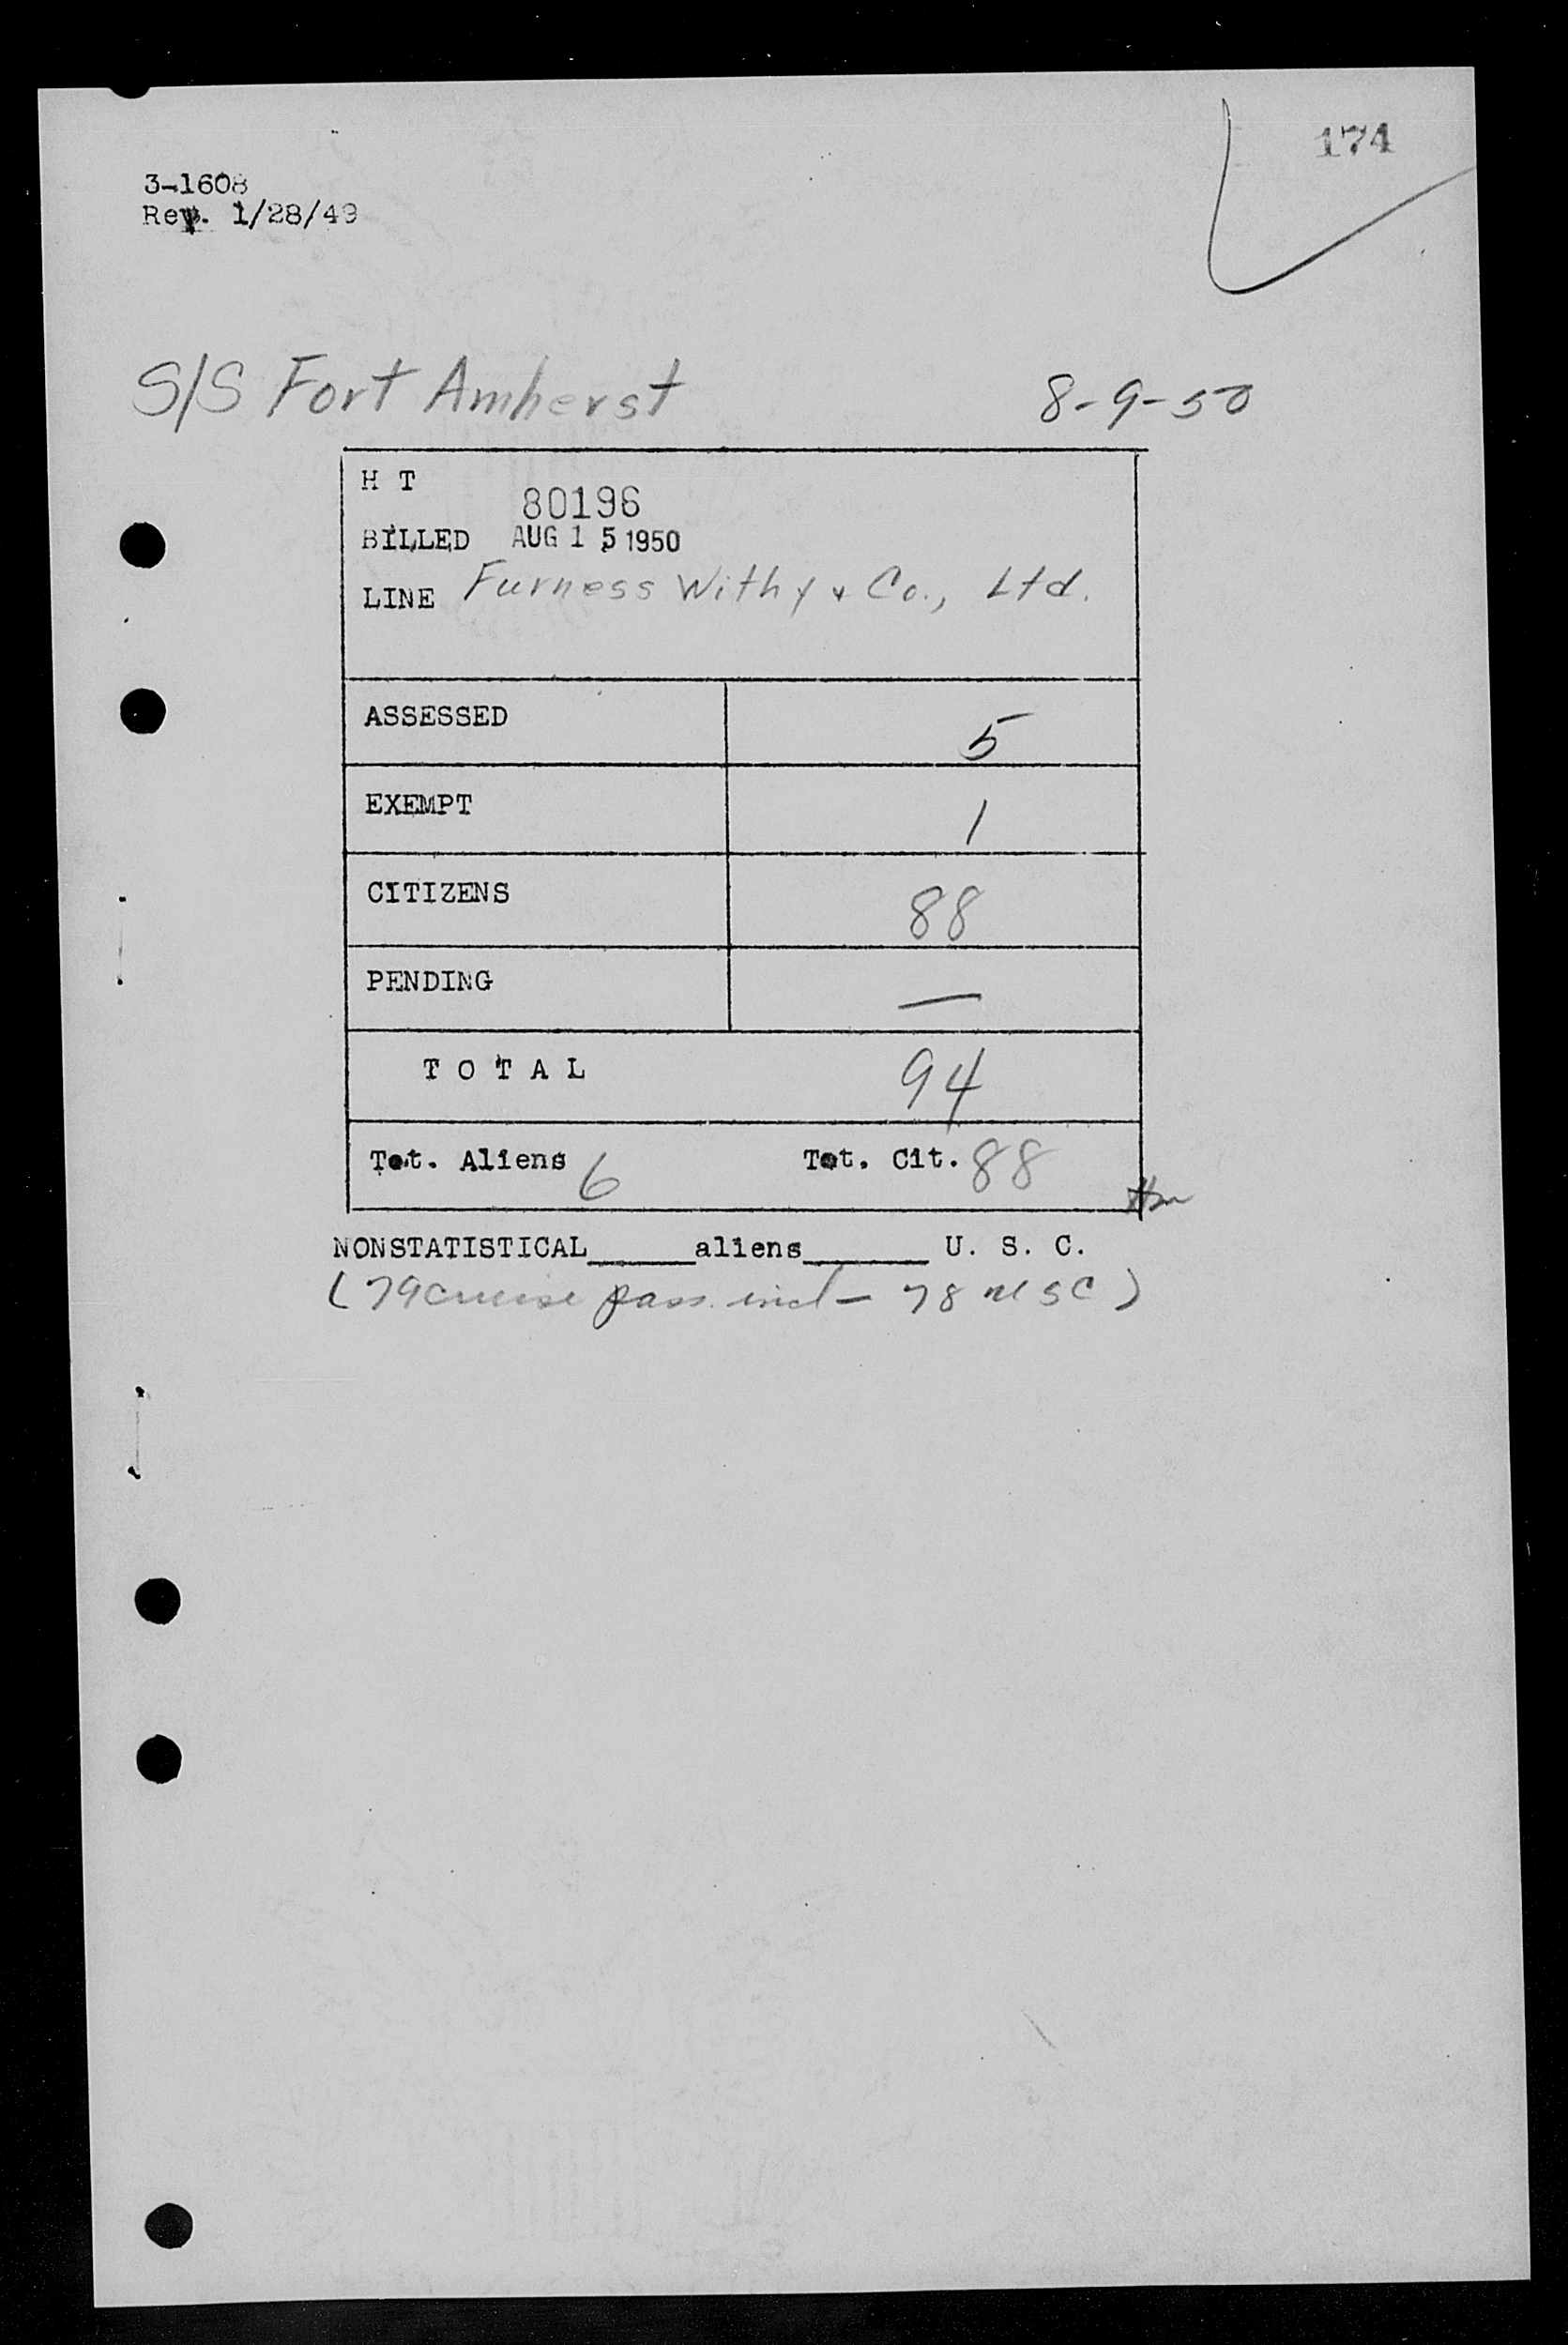 174
3-1608
Rev. 1/28/49
S/S Fort Amherst 8-9-50
H T
80196
BILLED AUG 15 1950
LINE Furness Withy & Co., Ltd.
ASSESSED 5
EXEMPT 1
CITIZENS 88
PENDING —
T O T A L 94
Tot. Aliens 6 Tot. Cit. 88
NONSTATISTICAL______aliens_______ U. S. C.
(79 cruise pass. incl - 78 USC)